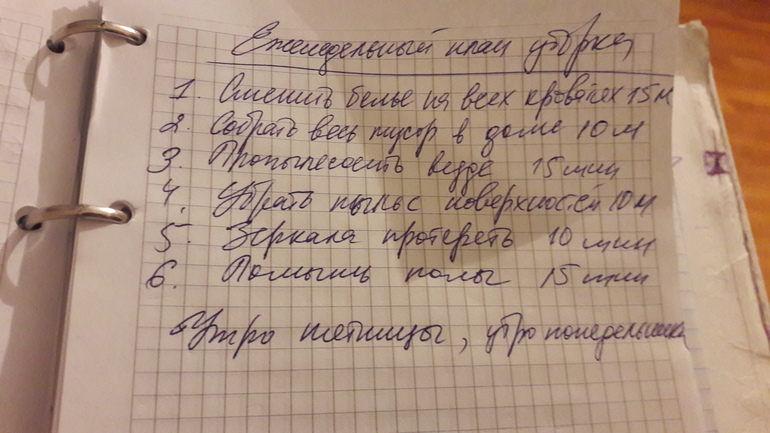 Еженедельный план уборка
1. Сменить белье на всех кроватях 15 м
2. Собрать весь мусор в доме 10 м
3. Пропылесосить везде 15 мин
4. Убрать пыль с поверхностей 10 м
5. Зеркала протереть 10 мин
6. Помыть полы 15 мин
Утро пятницы, утро понедельника